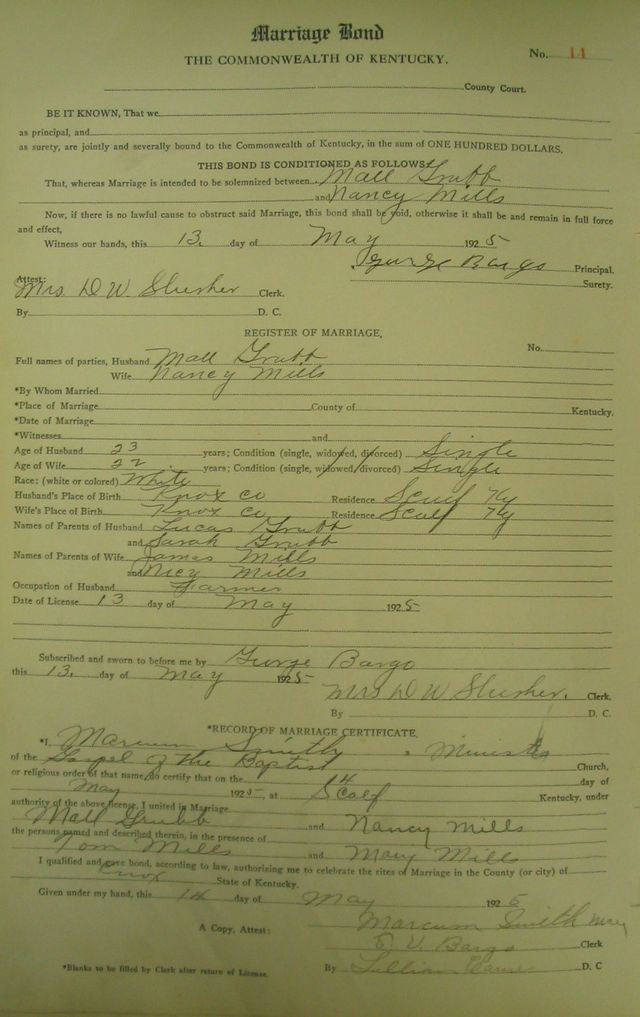 Marriage Bond
THE COMMONWEALTH OF KENTUCKY. No. 11
County Court.
BE IT KNOWN, That we
as principal, and
as surety, are jointly and severally bound to the Commonwealth of Kentucky, in the sum of ONE HUNDRED DOLLARS.
THIS BOND IS CONDITIONED AS FOLLOWS:
That, whereas Marriage is intended to be solemnized between Mall Grubb
and Nancy Mills
Now, if there is no lawful cause to obstruct said Marriage, this bond shall be void, otherwise it shall be and remain in full force
and effect,
Witness our hands, this 13. day of May 1925
George Bargo Principal.
Surety.
Attest:
Mrs. D W. Slusher Clerk.
By D. C.
REGISTER OF MARRIAGE.
No.
Full names of parties, Husband Mall Grubb
Wife Nancy Mills
*By Whom Married
*Place of Marriage County of Kentucky.
*Date of Marriage
*Witnesses and
Age of Husband 23 years; Condition (single, widowed, divorced) Single
Age of Wife 22 years; Condition (single, widowed, divorced) Single
Race: (white or colored) White
Husband's Place of Birth Knox Co Residence Scalf Ky
Wife's Place of Birth Knox Co Residence Scalf Ky
Names of Parents of Husband Lucas Grubb
and Sarah Grubb
Names of Parents of Wife James Mills
and Nicy Mills
Occupation of Husband Farmer
Date of License 13 day of May 1925
Subscribed and sworn to before me by George Bargo
this 13. day of May 1925
Mrs D W Slusher. Clerk.
By D. C.
*RECORD OF MARRIAGE CERTIFICATE.
*I, Marcum Smith, a Minister
of the Gospel of the Baptist Church,
or religious order of that name, do certify that on the 14 day of
May 1925, at Scalf Kentucky, under
authority of the above license, I united in Marriage
Mall Grubb and Nancy Mills
the persons named and described therein, in the presence of
Tom Mills and Mary Mills
I qualified and gave bond, according to law, authorizing me to celebrate the rites of Marriage in the County (or city) of
Knox State of Kentucky.
Given under my hand, this 14 day of May 1925
Marcum Smith
A Copy, Attest: Bargo Clerk
*Blanks to be filled by Clerk after return of License. By Lillian D. C